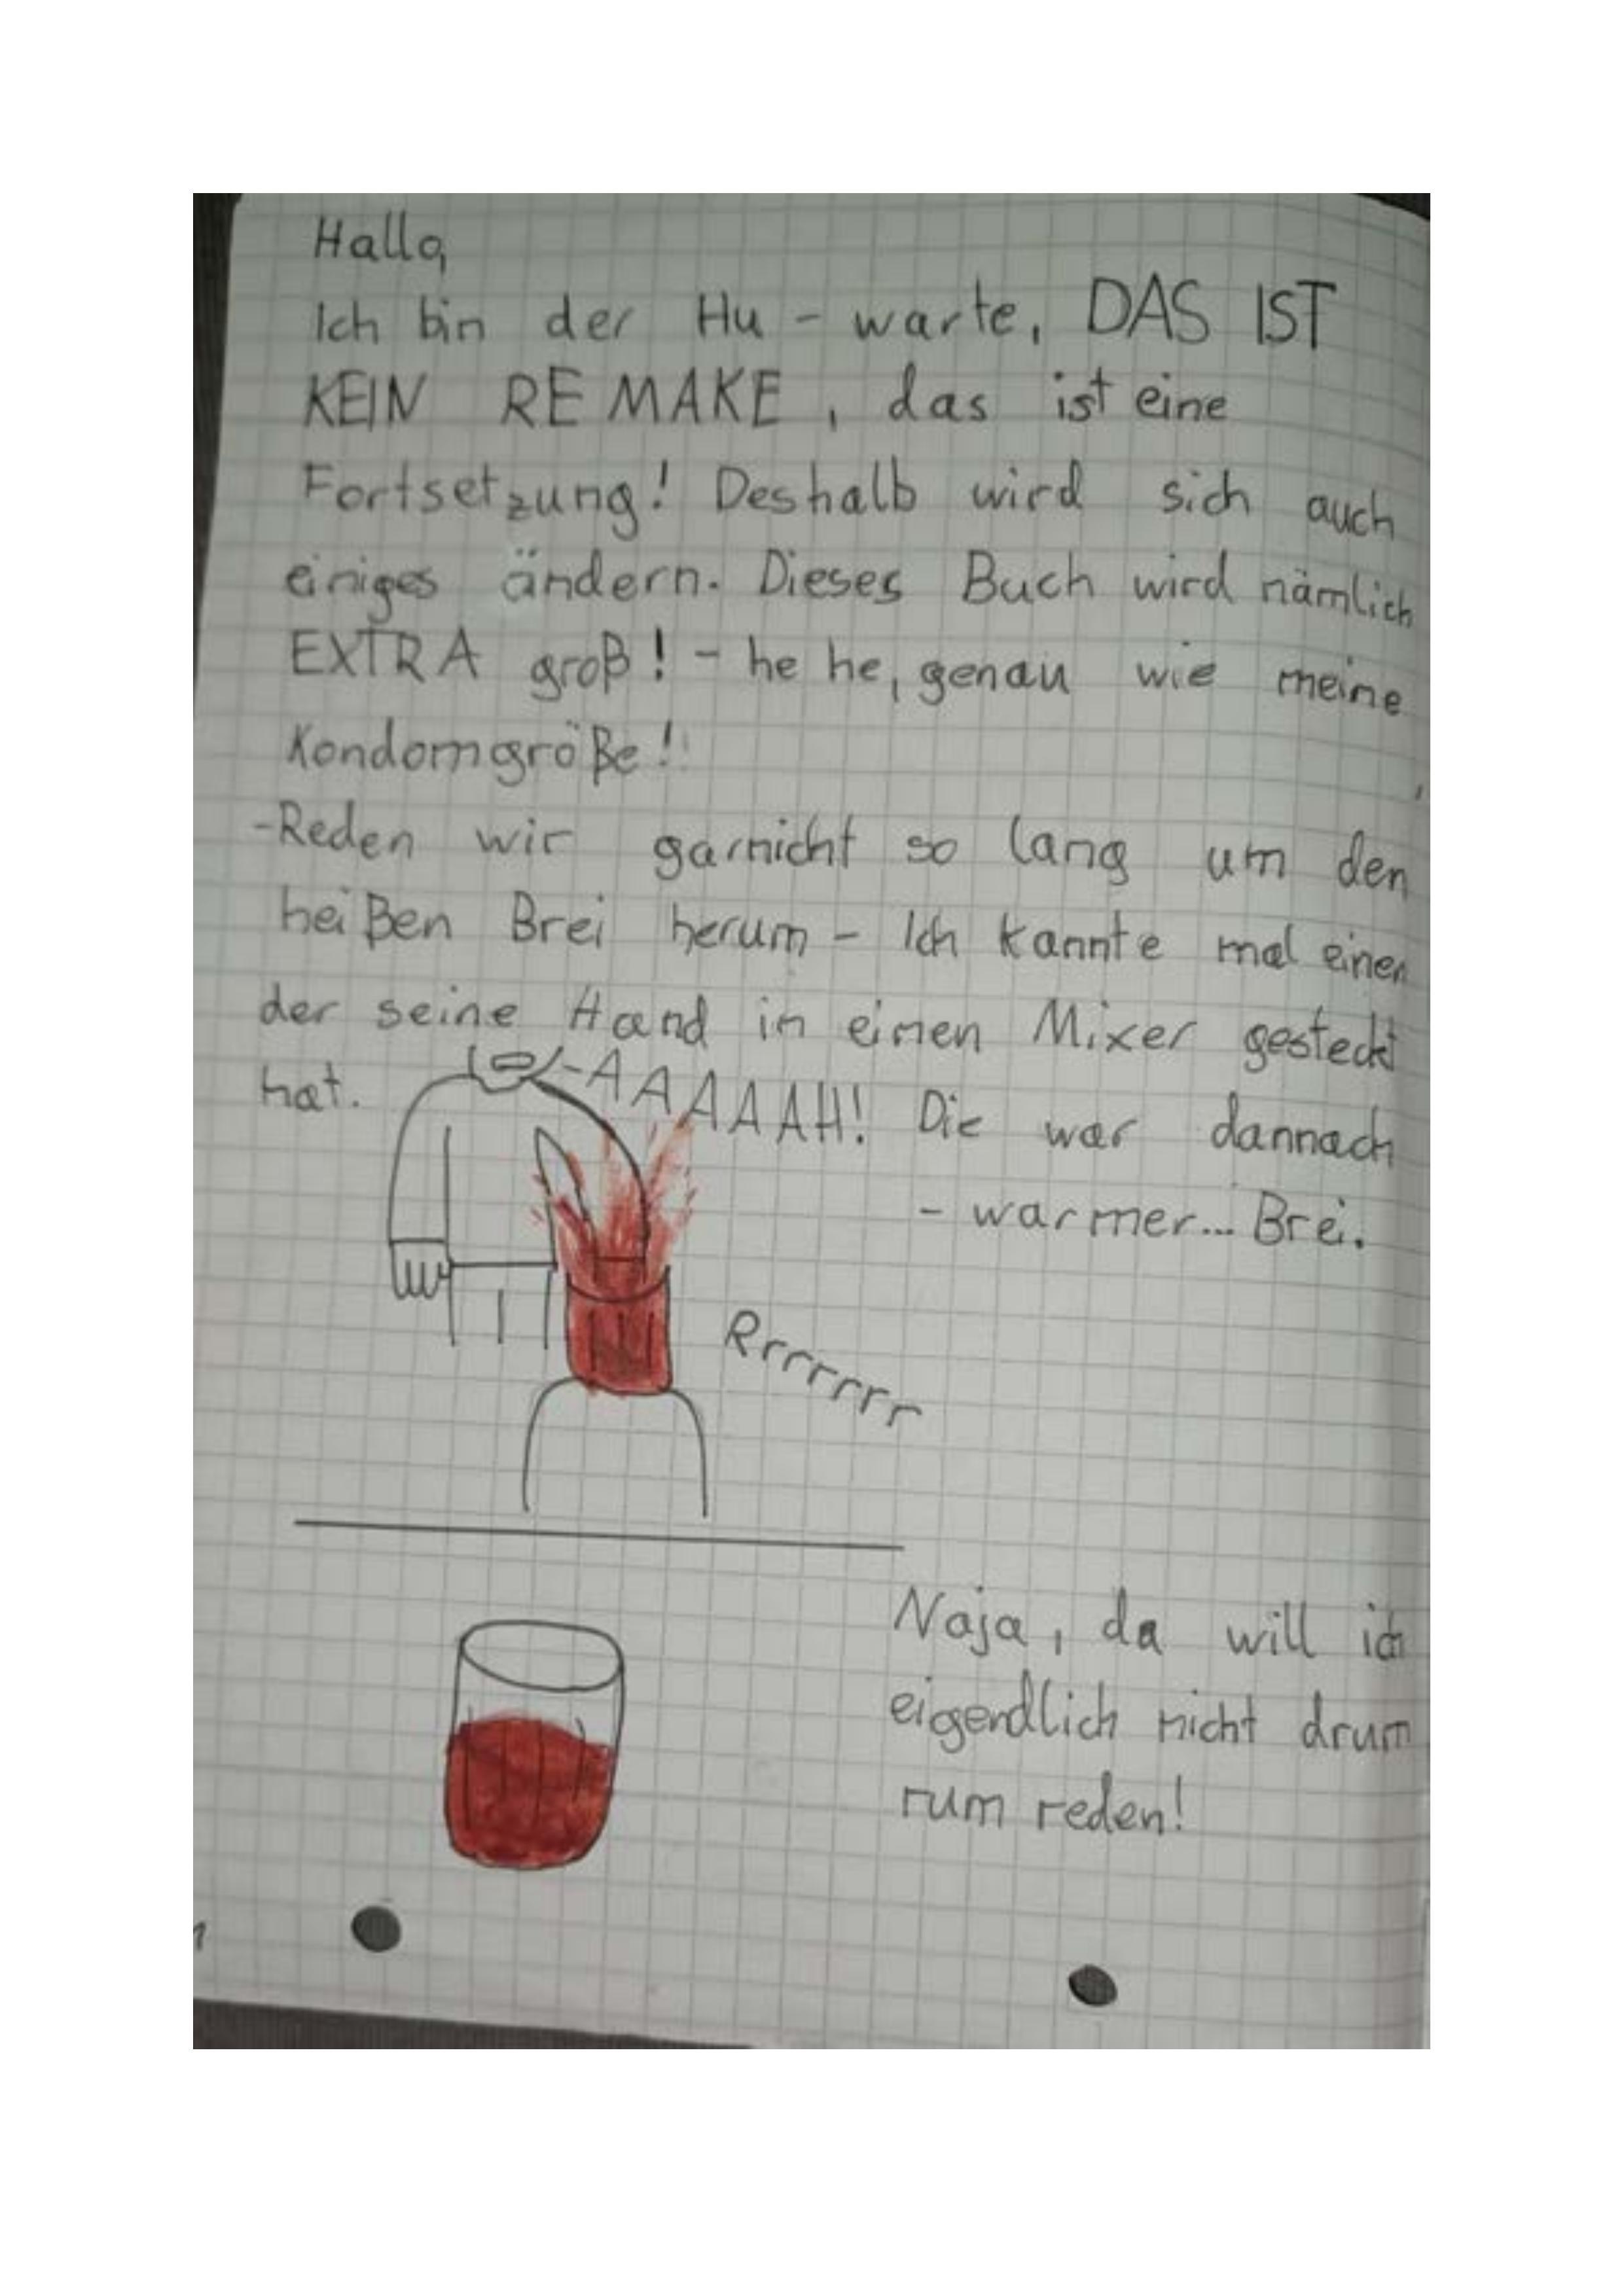 Hallo,
Ich bin der Hu - warte, DAS IST
KEIN REMAKE, das ist eine
Fortsetzung! Deshalb wird sich auch
einiges ändern. Dieses Buch wird nämlich
EXTRA groß! - he he, genau wie meine
Kondomgröße!!
-Reden wir garnicht so lang um den
heißen Brei herum - Ich kannte mal einen
der seine Hand in einen Mixer gesteckt
hat.
-AAAAAH! Die war dannach
- warmer... Brei.
Rrrrrrr
Naja, da will ich
eigendlich nicht drum
rum reden!
1